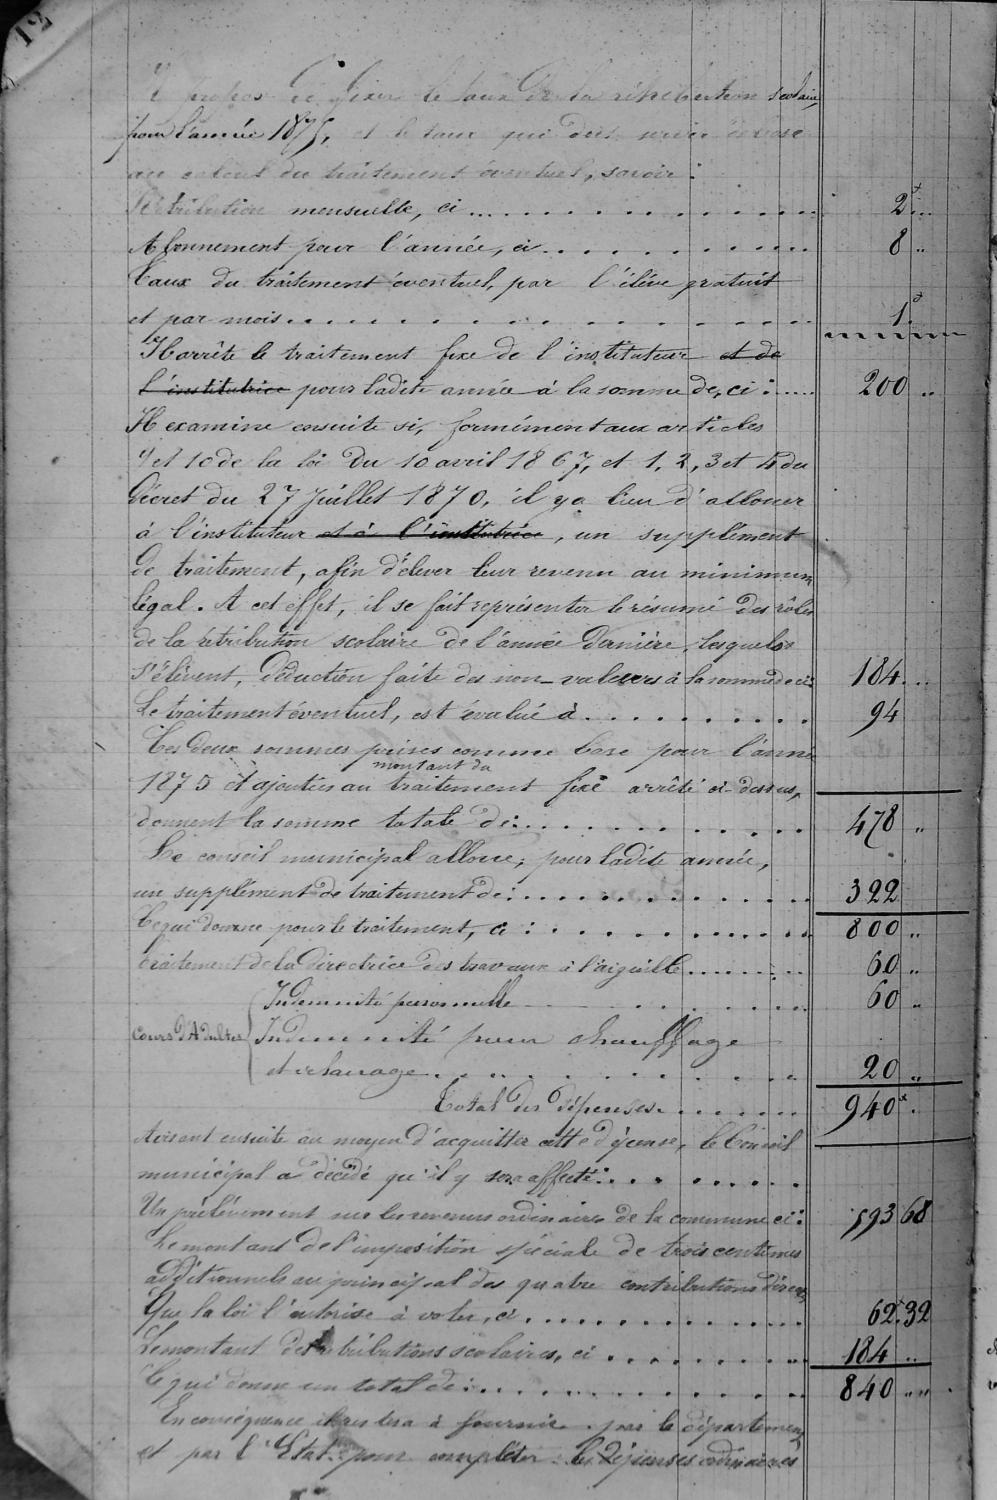 12
Il propose de fixer le taux de la rétribution scolaire
pour l'année 1875, et le taux qui doit servir de base
au calcul du traitement éventuel, savoir :
Rétribution mensuelle, ci .......... 2 ..
Abonnement pour l'année, ci .......... 8 ..
Taux du traitement éventuel, par l'élève gratuit
et par mois .......... 1
Il arrête le traitement fixe de l'instituteur et de
l'institutrice pour ladite année à la somme de, ci : .... 200 ..
Il examine ensuite si, formément aux articles
9 et 10 de la loi du 10 avril 1867, et 1, 2, 3 et 4 du
Décret du 27 Juillet 1870, il y a lieu d'allouer
à l'instituteur et à l'institutrice, un supplément
de traitement, afin d'élever leur revenu au minimum
légal. A cet effet, il se fait représenter le résumé des rôles
de la rétribution scolaire de l'année dernière, lesquels
s'élèvent, déduction faite des non-valeurs à la somme de ci : 184 ...
Le traitement éventuel, est évalué à .......... 94
Ces deux sommes prises comme base pour l'année
montant du
1875 et ajoutées au traitement fixe arrêté ci-dessus,
donnent la somme totale de : .......... 478 ..
Le conseil municipal alloue, pour ladite année,
un supplément de traitement de : .......... 322
Ce qui donne pour le traitement, ci : .......... 800 ..
traitement de la directrice des travaux à l'aiguille ........ 60 ..
Indemnité personnelle ...... 60 ..
Cours d'Adultes Indemnité pour chauffage
et éclairage .......... 20 ..
Total des dépenses ........ 940 .
Avisant ensuite au moyen d'acquitter cette dépense, le Conseil
municipal a décidé qu'il y sera affecté : ........
Un prélèvement sur les revenus ordinaires de la commune ci : 593 68
Le montant de l'imposition spéciale de trois centimes
additionnels au principal des quatre contributions directes
Que la loi l'autorise à voter, ci .......... 62.32
Le montant des rétributions scolaires, ci .......... 184 ..
Ce qui donne un total de : .......... 840 ....
En conséquence il restera à fournir par le département
et par l'Etat pour compléter les dépenses ordinaires